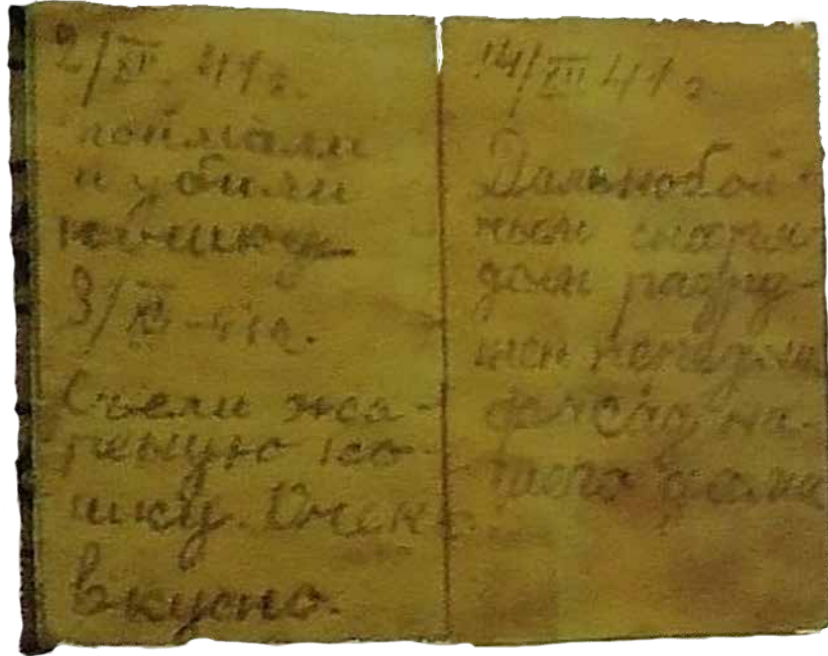 2/XII. 41 г.
поймали
и убили
кошку
3/XII-41г.
Съели жа-
реную ко-
шку. Очень
вкусно.
14/XII 41 г
Дальнобой-
ным снаря-
дом разру-
шен
фасад на-
шего дома